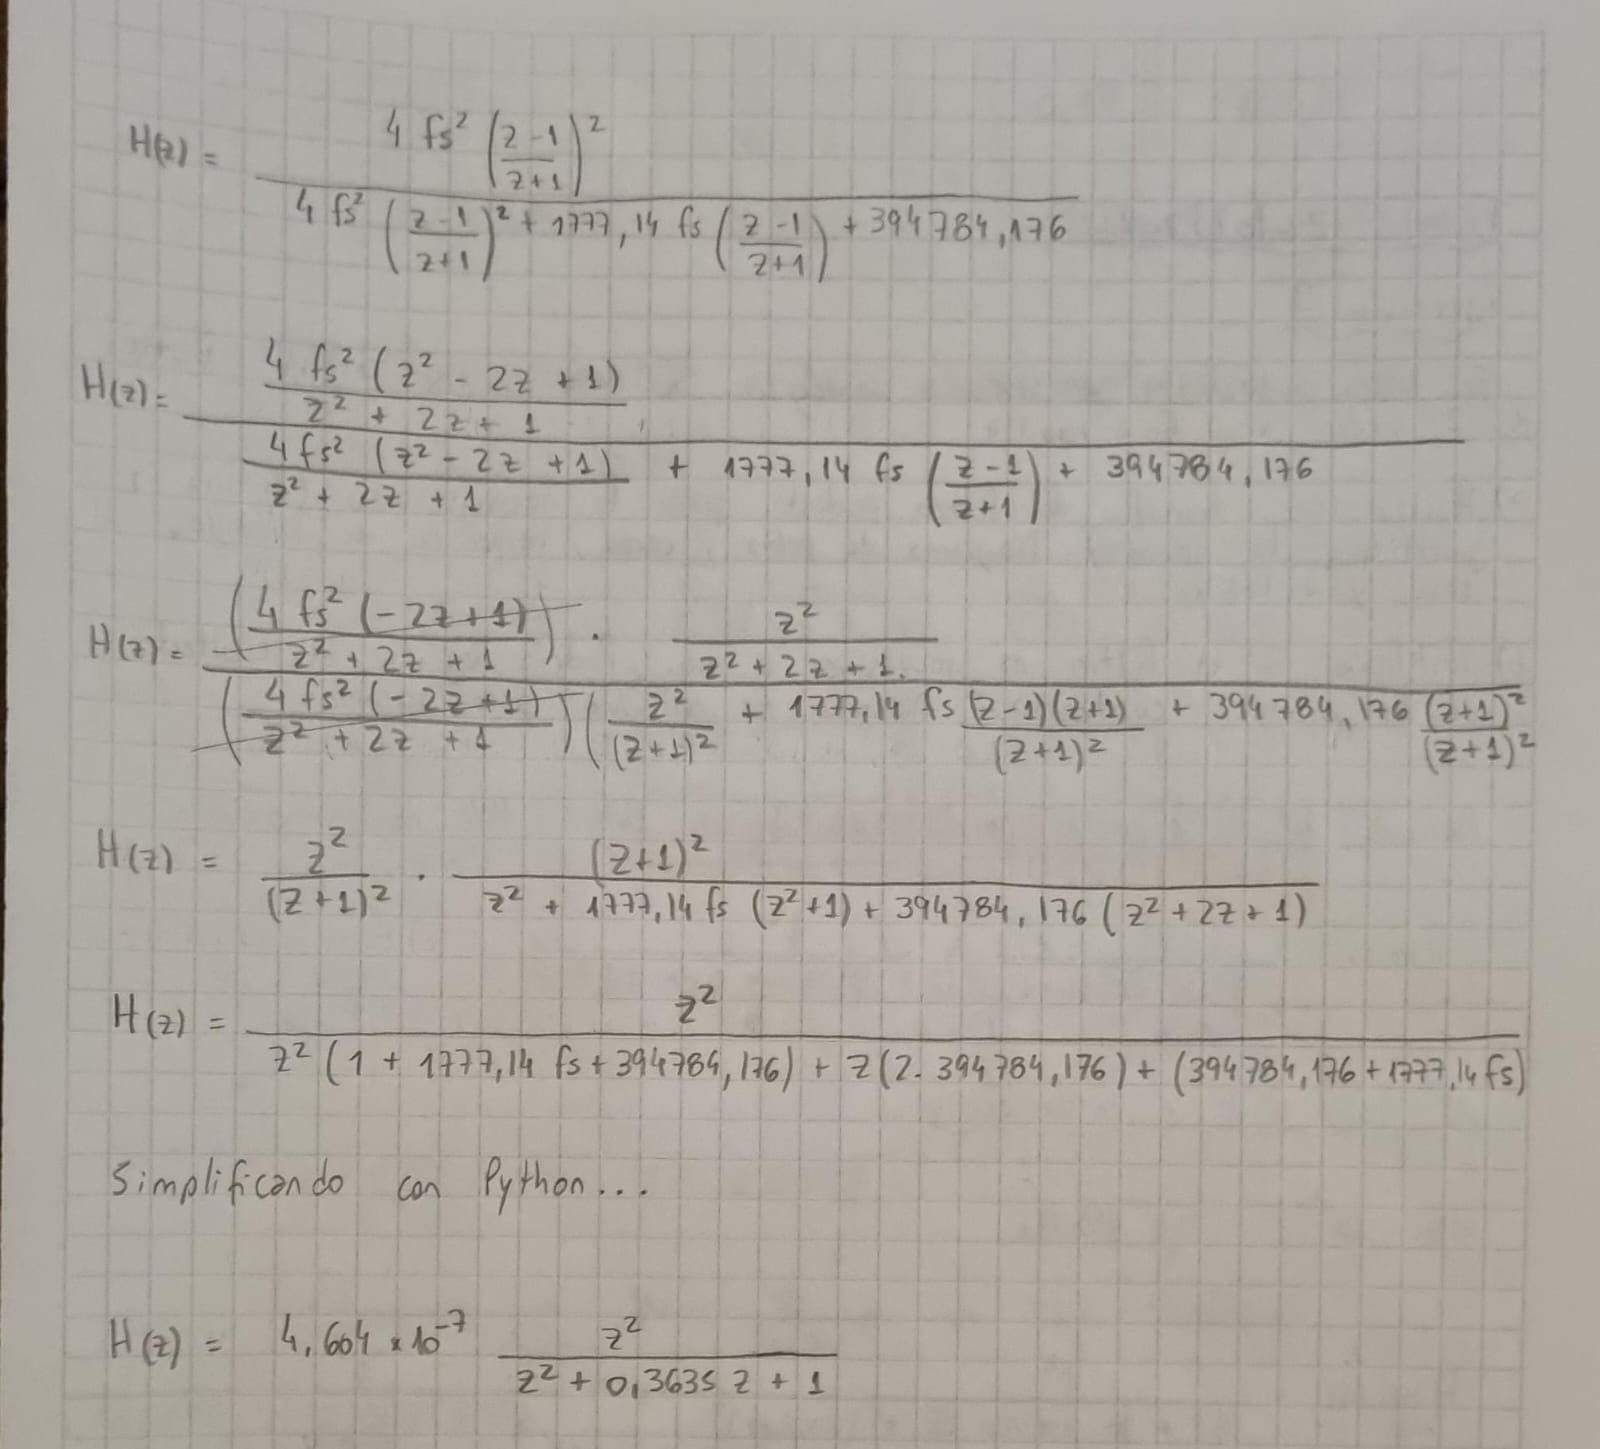 H(z) = 4 fs² ((z-1)/(z+1))² / (4 fs² ((z-1)/(z+1))² + 1777,14 fs ((z-1)/(z+1)) + 394784,176)
H(z) = (4 fs² (z² - 2z + 1) / (z² + 2z + 1)) / (4 fs² (z² - 2z + 1) / (z² + 2z + 1) + 1777,14 fs ((z-1)/(z+1)) + 394784,176)
H(z) = (4 fs² (-2z+1) / (z² + 2z + 1)) · z² / (z² + 2z + 1) / (4 fs² (-2z+1) / (z² + 2z + 1)) (z² / (z+1)² + 1777,14 fs (z-1)(z+1) / (z+1)² + 394784,176 (z+1)² / (z+1)²
H(z) = z² / (z+1)² · (z+1)² / (z² + 1777,14 fs (z²+1) + 394784,176 (z² + 2z + 1))
H(z) = z² / (z² (1 + 1777,14 fs + 394784,176) + z (2. 394784,176) + (394784,176 + 1777,14 fs))
Simplificando con Python...
H(z) = 4,604 × 10⁻⁷ z² / (z² + 0,3635 z + 1)